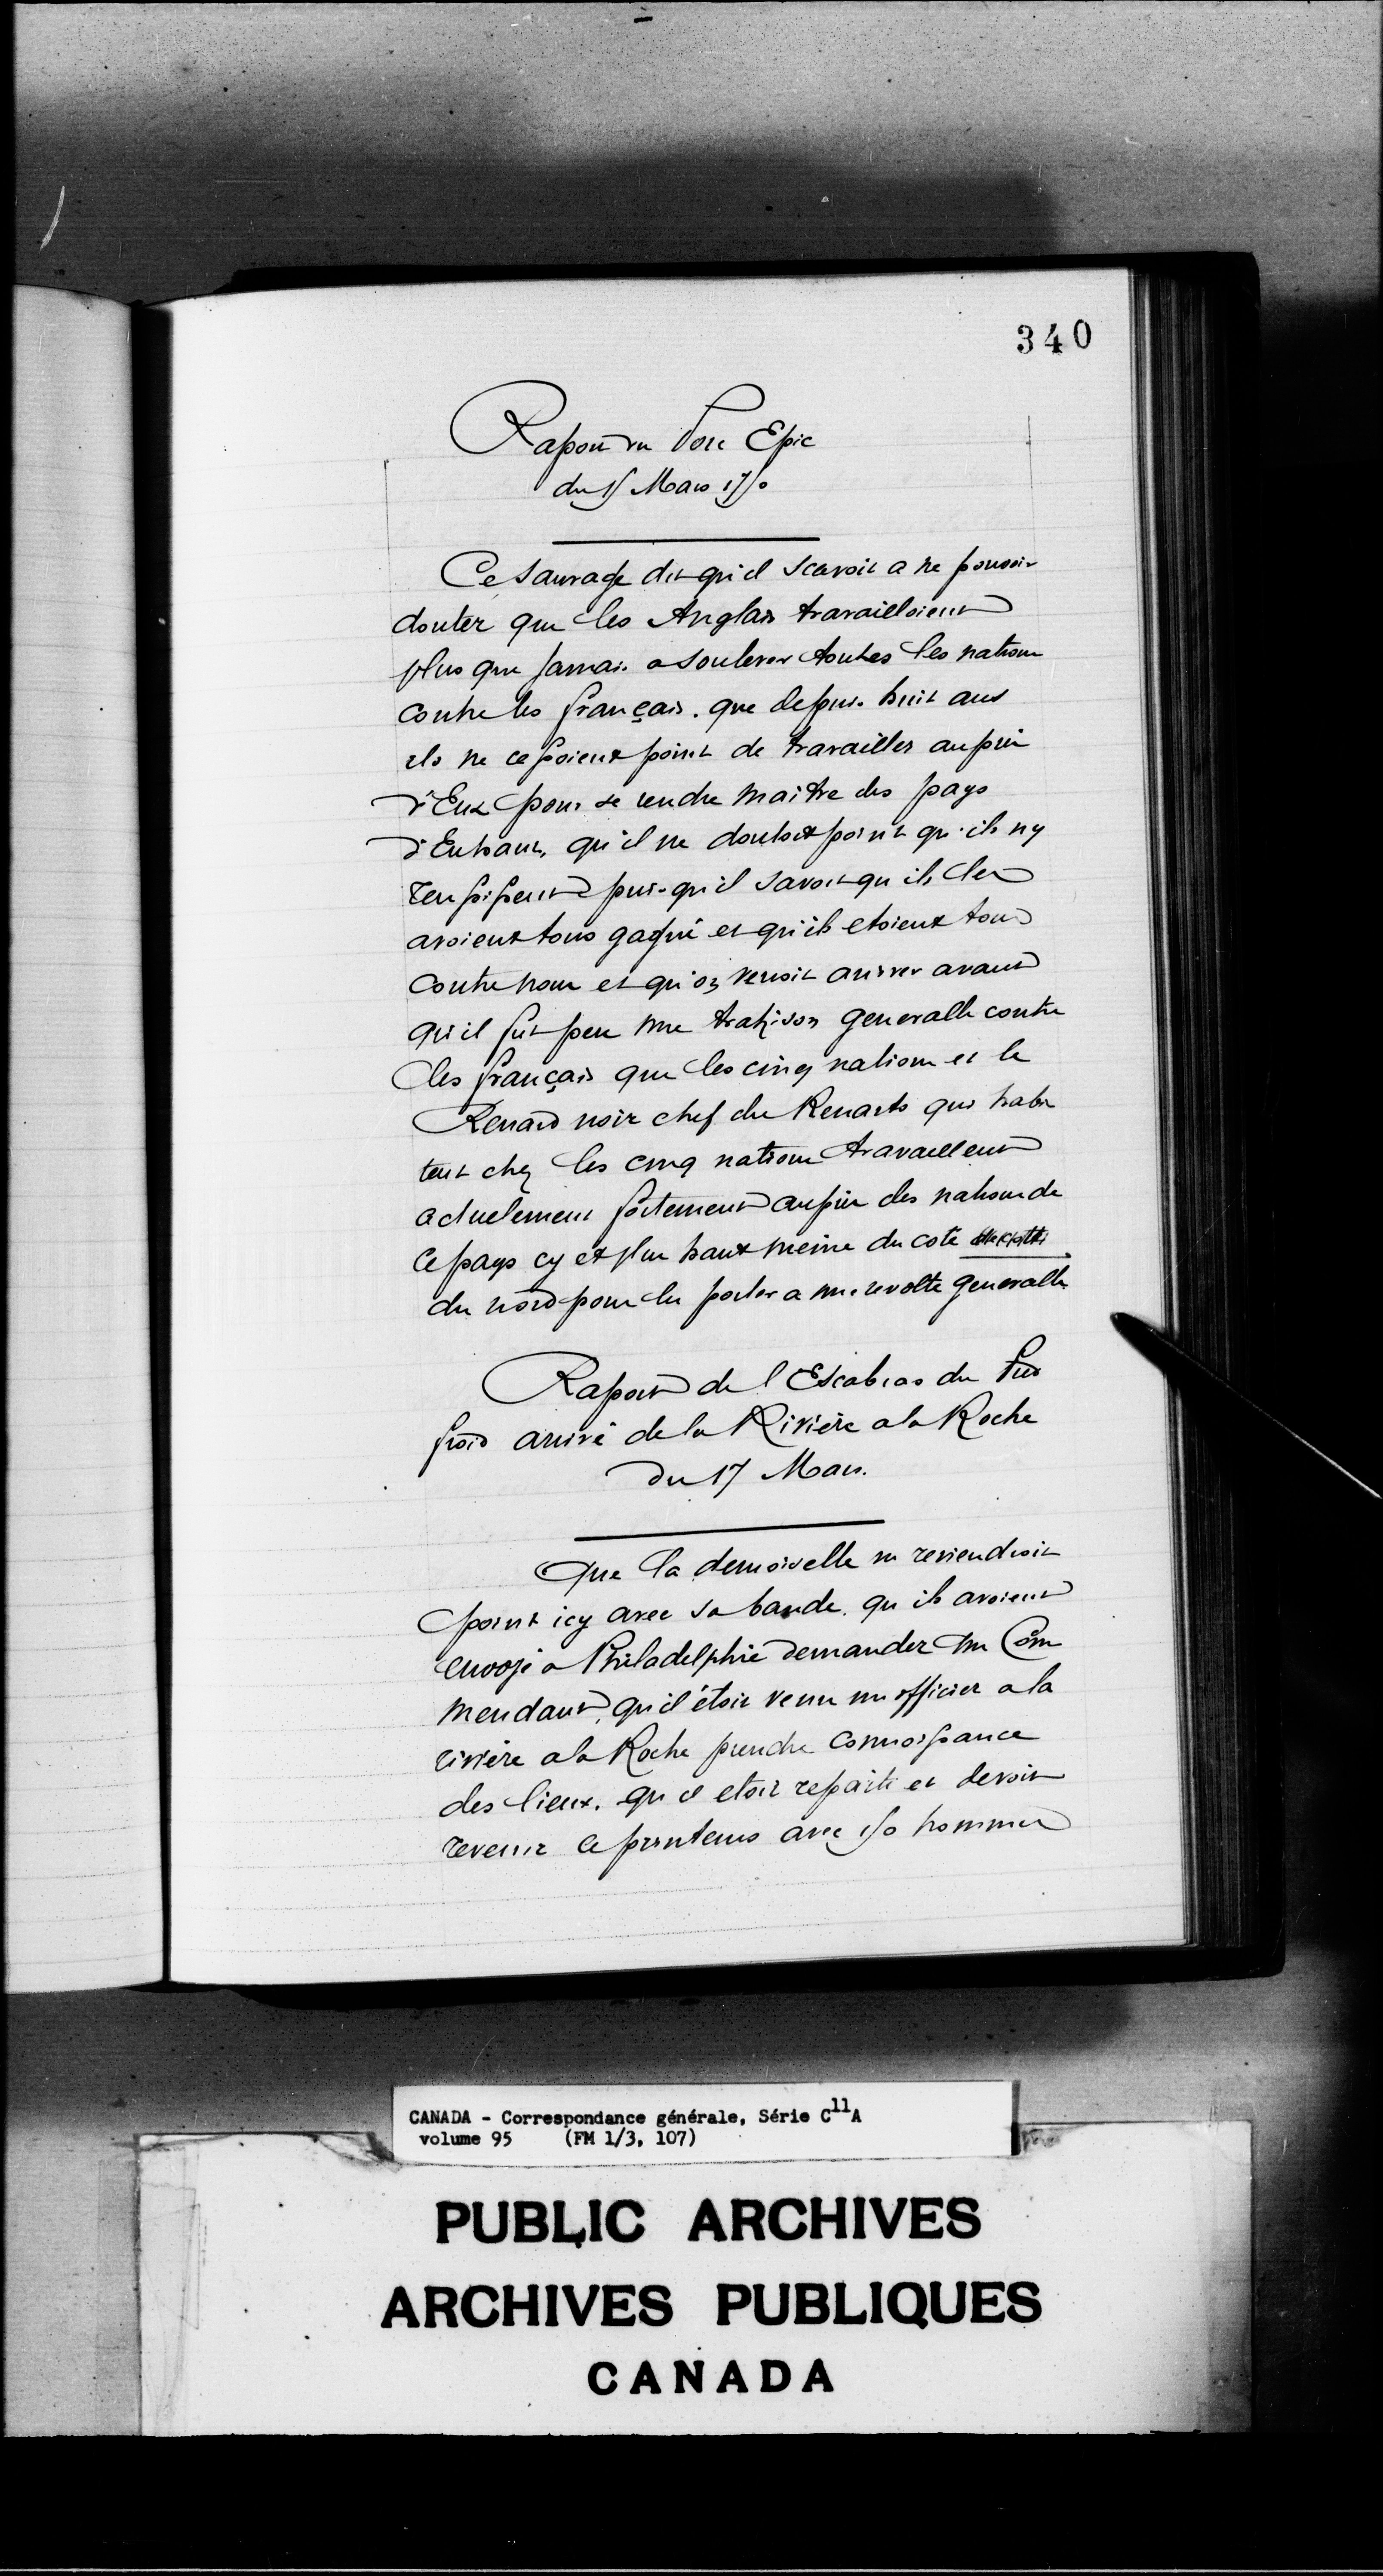 340
Raport du Porc Epic
du 15 Mars 1750
Ce sauvage dit qu'il scavoit a ne pouvoir
douter que les Anglais travailloient
plus que jamais a soulever toutes les nations
contre les français. que depuis huit ans
ils ne cessoient point de travailler auprès
d'Eux pour se rendre maitre des pays
d'Enhaut, qu'il ne doutoit point qu'ils n'y
reussissent puisqu'il savoit qu'ils les
avoient tous gagné et qu'ils etoient tous
contre nous et qu'on verroit arriver avant
qu'il fut peu une trahison generalle contre
les français que les cinq nations et le
Renard noir chef des Renards qui habi
tent chez les cinq nations travaillent
actuelement fortement auprès des nations de
ce pays cy et plus haut meme du coté
du nord pour les porter a une revolte generalle
Raport de l'Escabias du Pied
froid arrivé de la Rivière a la Roche
du 17 Mars.
Que la demoiselle ne reviendroit
point icy avec sa bande. qu'ils avoient
envoyé a Philadelphie demander un Com
mendant, qu'il étoit venu un officier a la
rivière a la Roche prendre connoissance
des lieux. qu'il etoit reparti et devoit
revenir ce printems avec 150 hommes
CANADA - Correspondance générale, Série C11A
volume 95 (FM 1/3, 107)
PUBLIC ARCHIVES
ARCHIVES PUBLIQUES
CANADA